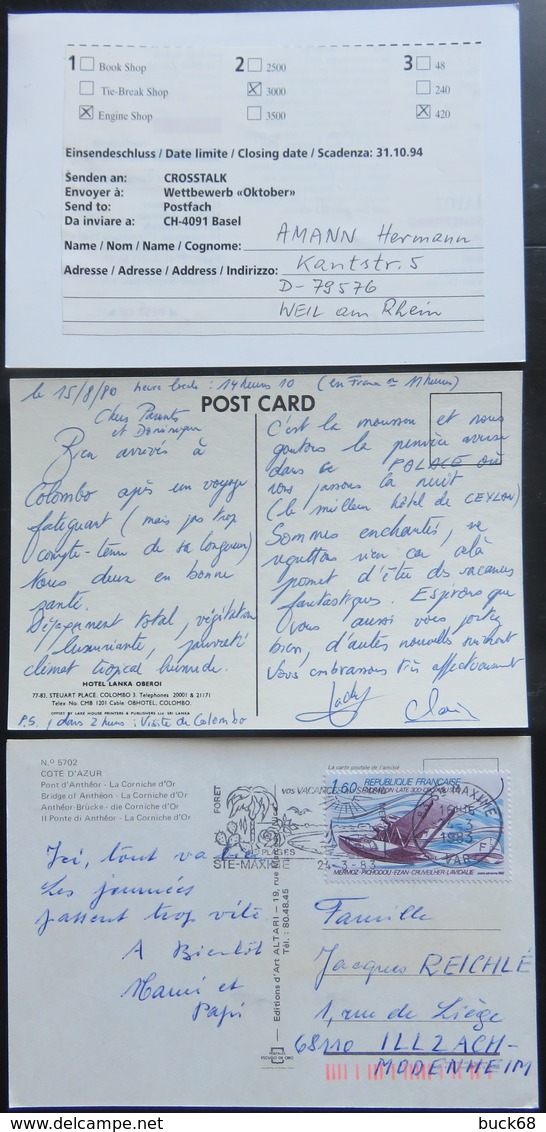 1 Book Shop
Tie-Break Shop
Engine Shop
2 2500
3000
3500
3 48
240
420
Einsendeschluss / Date limite / Closing date / Scadenza: 31.10.94
Senden an: CROSSTALK
Envoyer à: Wettbewerb «Oktober»
Send to: Postfach
Da inviare a: CH-4091 Basel
Name / Nom / Name / Cognome: AMANN Hermann
Adresse / Adresse / Address / Indirizzo: Kantstr. 5
D-79576
WEIL am Rhein
le 15/8/80 heure locale : 14 heures 10 (en France 11 heures)
POST CARD
Chers Parents
et Dominique
Bien arrivés à
Colombo après un voyage
fatiguant (mais pas trop
compte-tenu de sa longueur)
Nous deux en bonne
santé.
Dépaysement total, végétation
luxuriante, pauvreté
climat tropical humide.
HOTEL LANKA OBEROI
77-83, STEUART PLACE. COLOMBO 3. Telephones 20001 & 21171
Telex No. CMB 1201 Cable OBHOTEL, COLOMBO.
OFFSET BY LAKE HOUSE PRINTERS & PUBLISHERS LTD SRI LANKA
P.S. dans 2 heures : Visite de Colombo
C'est la mousson et nous
goutons la première averse
dans ce PALACE où
nous passons la nuit
(le meilleur hôtel de CEYLAN)
Sommes enchantés, ne
regrettons rien car celà
promet d'être des vacances
fantastiques. Espérons que
vous aussi vous portez
bien, d'autres nouvelles suivront
Vous embrassons très affectueusement
Jacky Claire
N.º 5702
COTE D'AZUR
Pont d'Anthéor - La Corniche d'Or
Bridge of Anthéon - La Corniche d'Or
Anthéor-Brücke - die Corniche d'Or
Il Ponte di Anthéor - La Corniche d'Or
Ici, tout va bien
Les journées
passent trop vite
A Bientôt
Mami et
Papi
FORET
VOS VACANCES
PLAGES
STE-MAXIME
24-3-83
Editions d'Art ALTARI - 19, rue
Tél. : 80.48.45
La carte postale de l'amitié
1,60 REPUBLIQUE FRANÇAISE
LATE 300 CROIX DU SUD
MERMOZ-PICHODOU-EZAN-CRUVEILHER-LAVIDALIE
MAXIME
1983
VAR
Famille
Jacques REICHLÉ
1, rue de Liège
68110 ILLZACH-
MODENHEIM
buck68